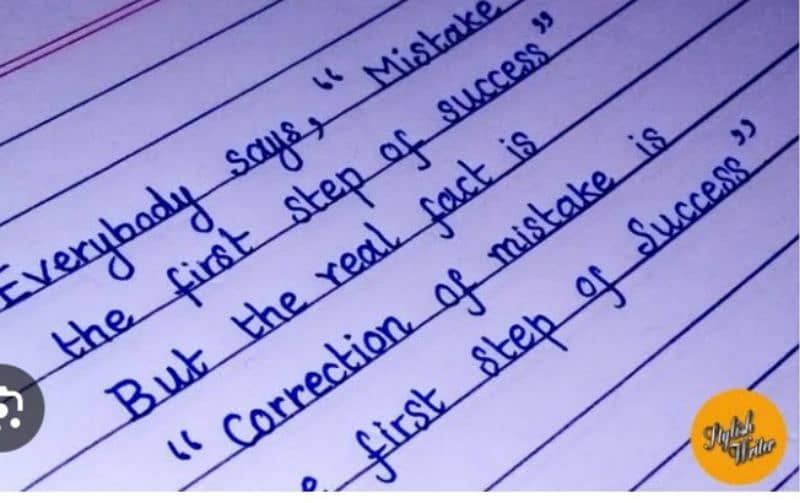 Everybody says, “Mistake
the first step of success”
But the real fact is
“Correction of mistake is
first step of Success”
Stylish
Writer